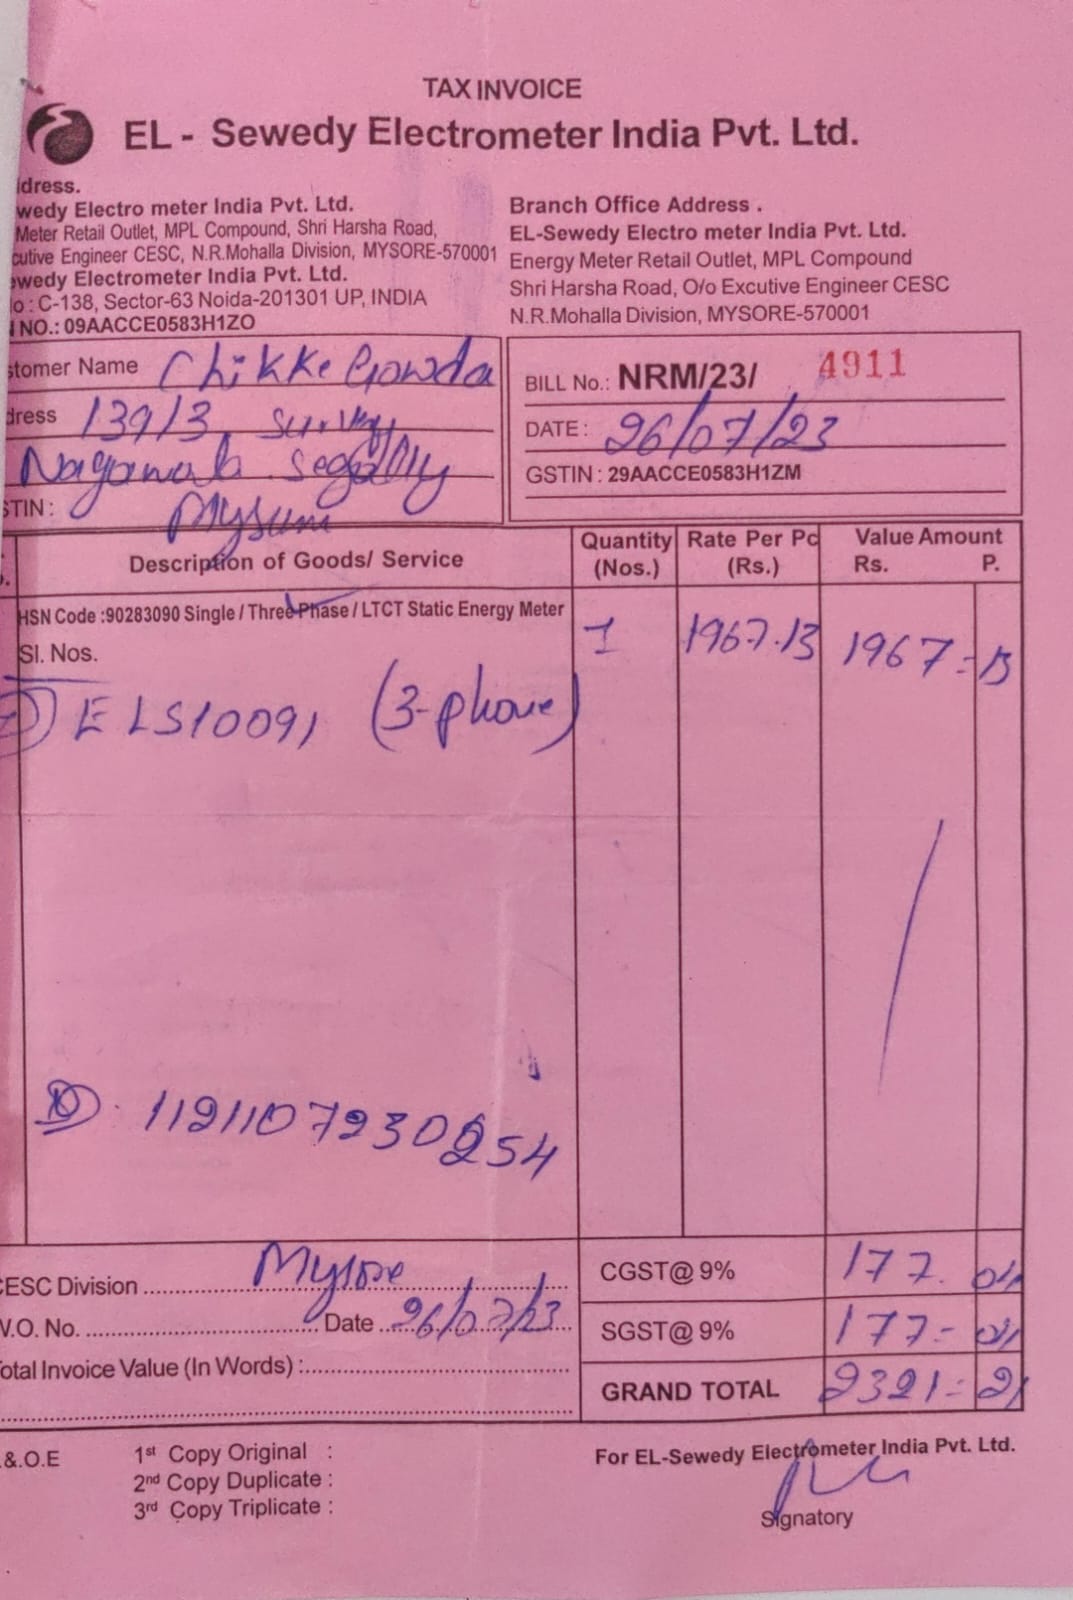 TAX INVOICE
EL - Sewedy Electrometer India Pvt. Ltd.
dress.
wedy Electro meter India Pvt. Ltd.
Meter Retail Outlet, MPL Compound, Shri Harsha Road,
cutive Engineer CESC, N.R.Mohalla Division, MYSORE-570001
wedy Electrometer India Pvt. Ltd.
o : C-138, Sector-63 Noida-201301 UP, INDIA
NO.: 09AACCE0583H1ZO
Branch Office Address .
EL-Sewedy Electro meter India Pvt. Ltd.
Energy Meter Retail Outlet, MPL Compound
Shri Harsha Road, O/o Excutive Engineer CESC
N.R.Mohalla Division, MYSORE-570001
stomer Name Chikke Gowda
dress 139/3, survey
Nagawala
STIN :
BILL No.: NRM/23/ 4911
DATE : 26/07/23
GSTIN : 29AACCE0583H1ZM
Description of Goods/ Service
Quantity (Nos.)
Rate Per Pc (Rs.)
Value Amount
Rs. P.
HSN Code :90283090 Single / Three Phase / LTCT Static Energy Meter
1 1967.13 1967=13
Sl. Nos.
ELS10091 (3-phase)
1121107230254
CESC Division Mysore
W.O. No. Date 26/07/23
Total Invoice Value (In Words) :
CGST@ 9% 177.04
SGST@ 9% 177=04
GRAND TOTAL 2321=21
.&.O.E
1st Copy Original :
2nd Copy Duplicate :
3rd Copy Triplicate :
For EL-Sewedy Electrometer India Pvt. Ltd.
Signatory